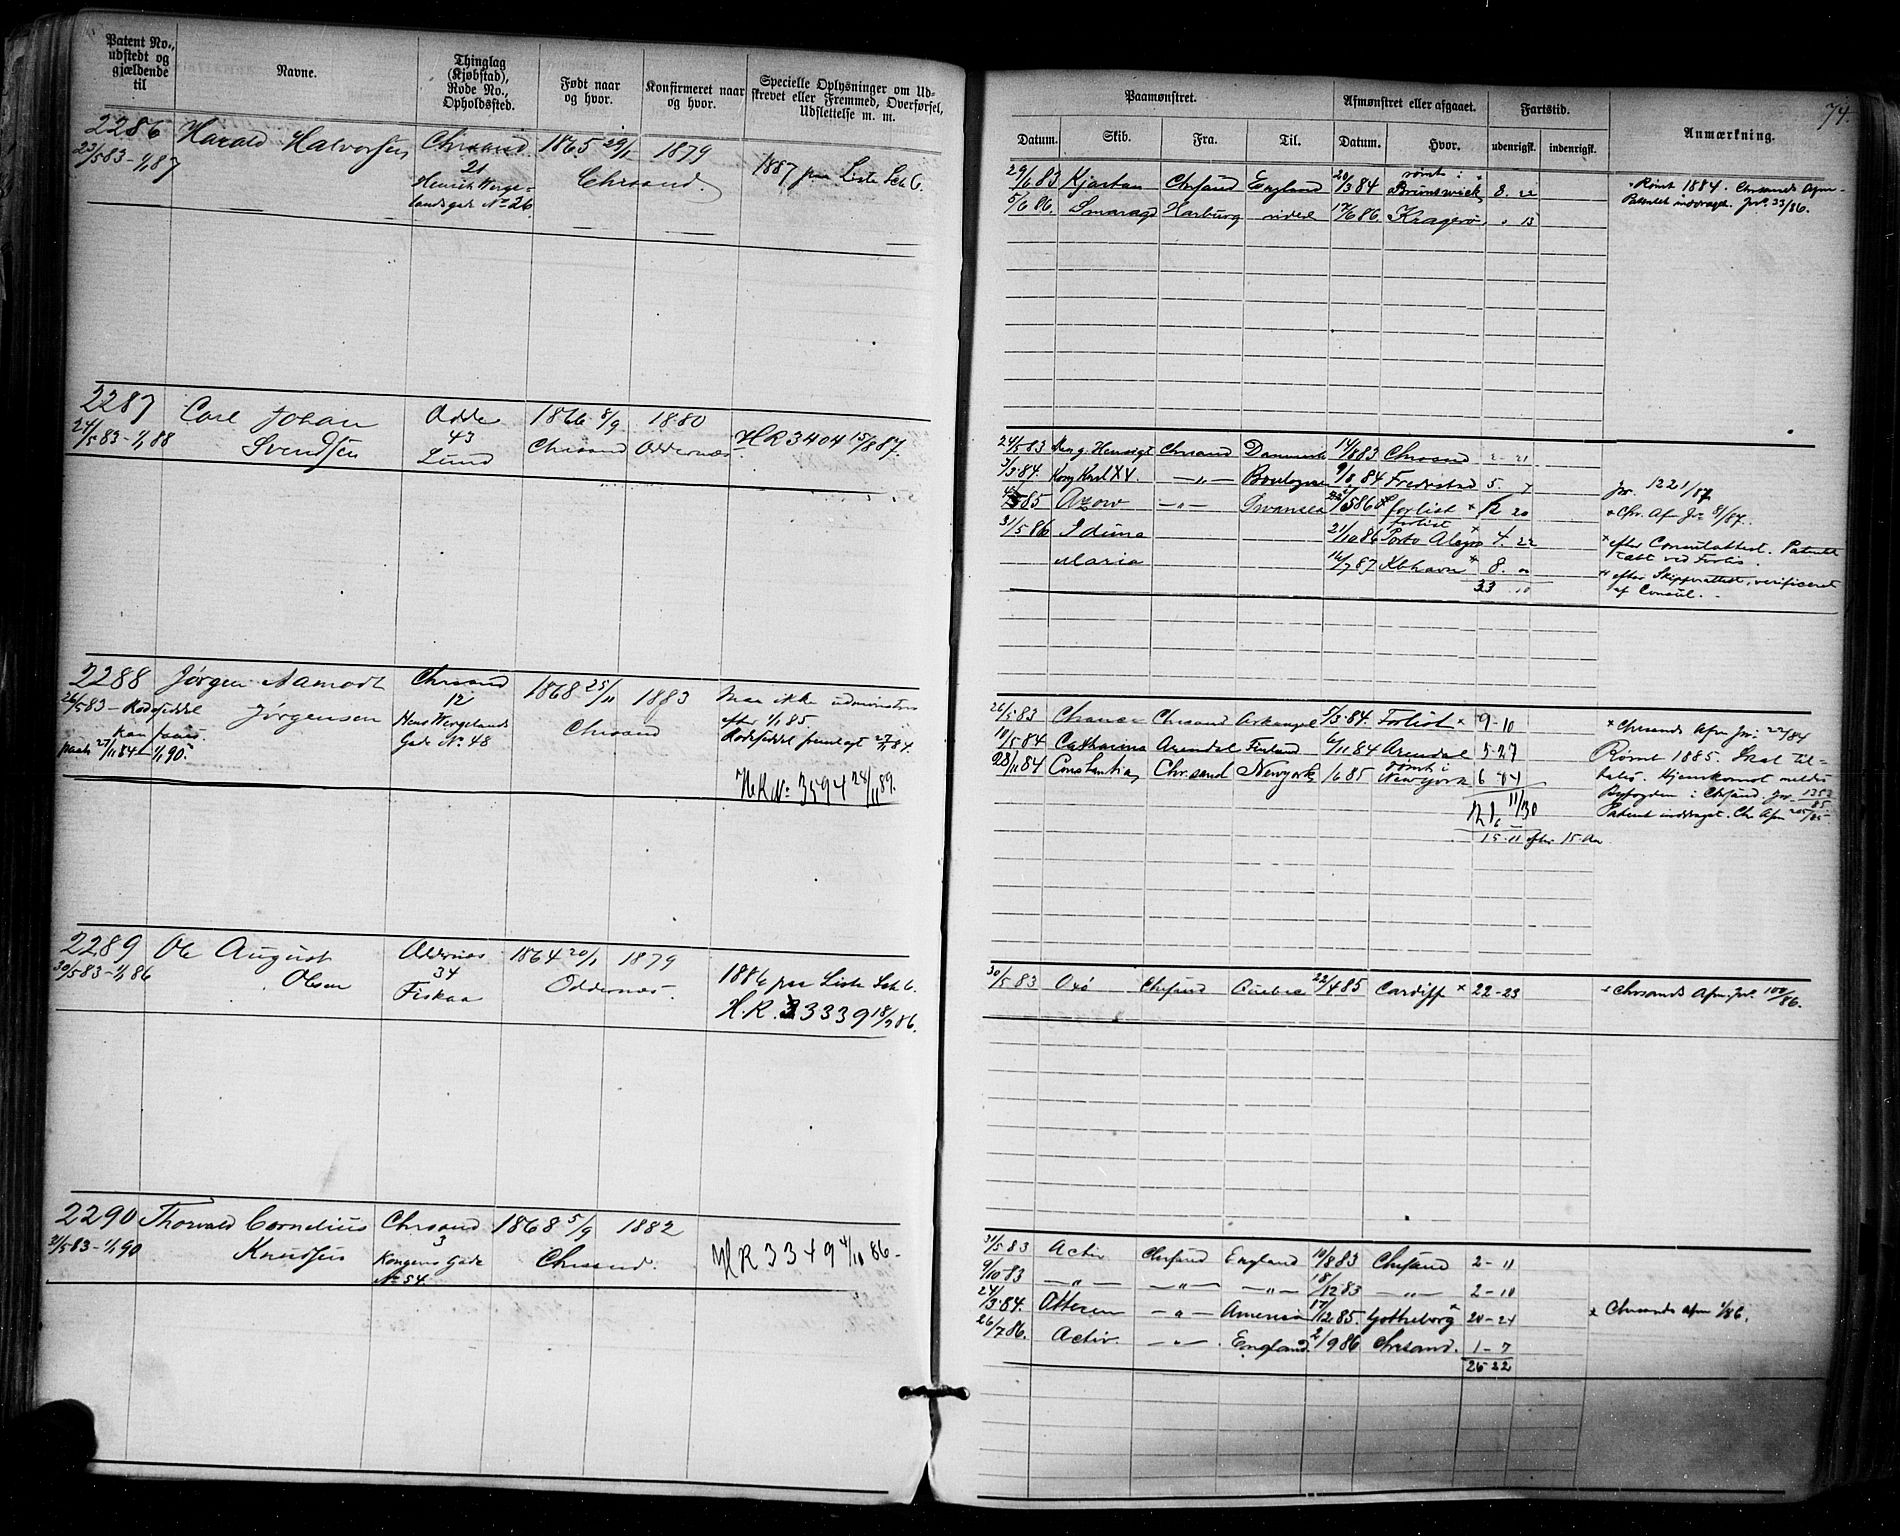 Patent No., udstedt og gjældende til
Navne.
Thinglag (Kjøbstad), Rode No., Opholdssted.
Født naar og hvor.
Konfirmeret naar og hvor.
Specielle Oplysninger om Udskrevet eller Fremmed, Overførsel, Udslettelse m. m.
2286 Harald Halvorsen Chrsand 1865 29/1 1879
23/5 83 - 1/1 87 21 Chrsand. 1887 paa Liste Sct. C.
Henrik Werge-
landsgade No 26
2287 Carl Johan Odde 1866 8/9 1880
24/5 83 - 1/1 88 Svendsen 43 Chrsand Oddernæs HR 3404 15/8 87.
Lund
2288 Jørgen Aamodt Chrsand 1868 25/11 1883 maa ikke udmønstres
26/5 83 - Rodeseddel Jørgensen 12 Chrsand efter 1/1 85
kan faaes. Henr Wergelands Rodeseddel fremlagt 27/11 84.
paats 27/11 84 - 1/1 90. Gade No 48
HR No 3594 24/11 89.
2289 Ole August Oddernæs 1864 20/1 1879
30/5 83 - 1/1 86 Olsen 34 Oddernæs. 1886 paa Liste Sct C.
Fiskaa H.R. 3339 18/9 86.
2290 Thorvald Cornelius Chrsand 1868 5/9 1882
31/5 83 - 1/1 90 Knudsen 3 Chrsand. HR 3349 4/10 86.-
Kongens Gade
No 54
74.
Paamønstret.
Afmønstret eller afgaaet.
Fartstid.
Anmærkning.
Datum. Skib. Fra. Til. Datum. Hvor. udenrigsk. indenrigsk.
29/6 83 Kjartan Chrsand England 20/3 84 rømt i Brunswick 8. 22 Rømt 1884. Chrsands Afm-
5/6 86. Smaragd Harburg videre 17/6 86. Kragerø " 13 Patentet inddraget. Jnl. 33/86.
24/5 83 Chrsand Danmark 14/8 83 Chrsand 2-21
3/3 84. Kong Karl XV. -"- Boulogne 9/8 84 Fredrstad 5. 7 Jnr. 1221/87
85 Azow -"- Swansea forlist 12 20 Chr. Af Jnr 9/87.
31/5 86 Iduna 21/10 86 forlist Porto Alegre 4. 22 efter Consulattest. Patentet
tabt ved Forlis.
Maria 16/7 87 Kbhavn 8. " efter Skipperattest, verificeret
33 10 af Consul.
26/5 83 Chance Chrsand Arkangel 5/3 84. Forlist 9-10 Chrsands Afm Jnr. 22/84
10/5 84 Catharina Arendal Finland 6/11 84 Arendal 5-27 Rømt 1885. Skal til-
28/11 84 Constantia Chrsand Newyork 1/6 85 rømt i Newyork 6 04 tales. Hjemkomst meldes
Byfogden i Chrsand. Jnr 1353/85.
Patent inddraget. Chr Afm
15-11 efter 15. Aar
30/5 83 Oxö Chrsand Quebec 22/4 85 Cardiff 22-23 Chrsands Afm. Jnl. 100/86.
31/5 83 Activ Chrsand England 10/8 83 Chrsand 2-11
9/10 83 -"- -"- -"- 18/12 83 -"- 2-10
24/3 84. Otteren -"- America 17/12 85. Gotheborg 20-24 Chrsands Afm 1/86.
26/7 86. Activ. -"- England 2/9 86 Chrsand. 1-7
26 22